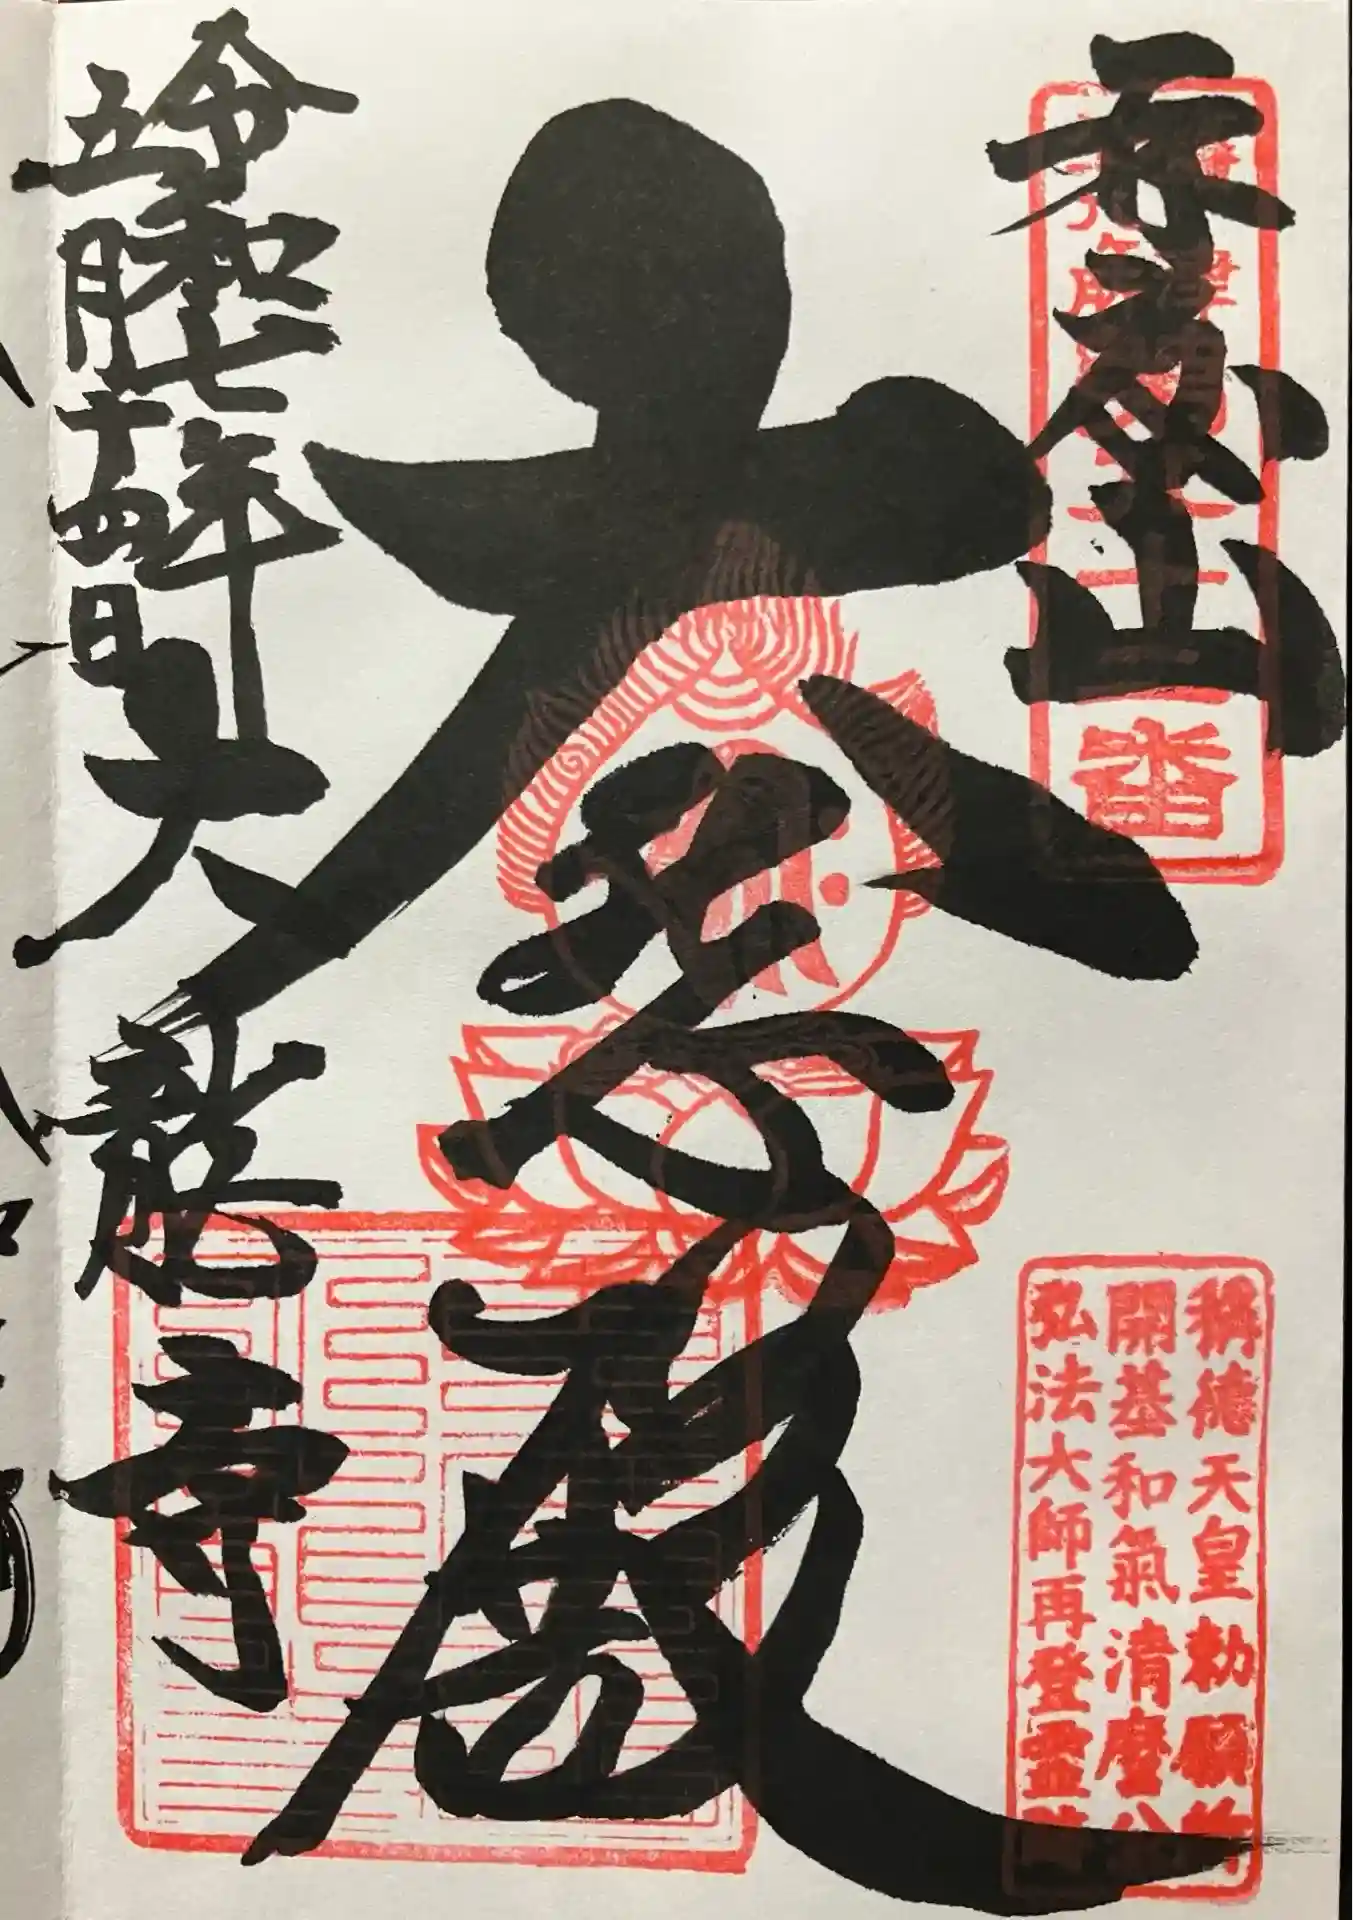 奉登山
番
大悲殿
稱德天皇勅願
開基和氣清麿公
弘法大師再登靈
令和七年
五月十四日
大龍寺